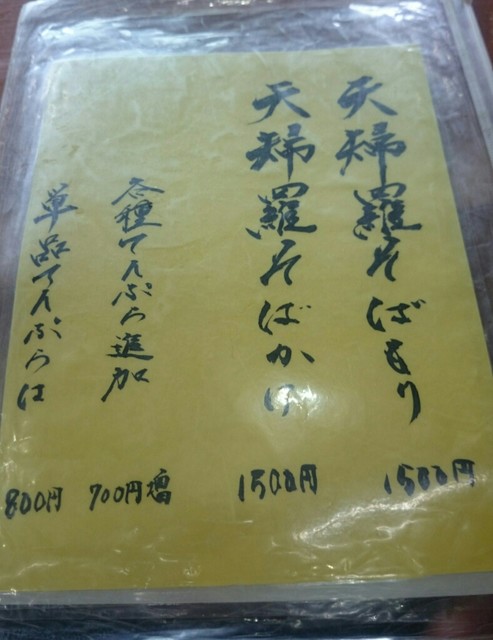 天婦羅そばもり 1500円
天婦羅そばかけ 1500円
各種てんぷら進加 700円増
単品てんぷらは 800円